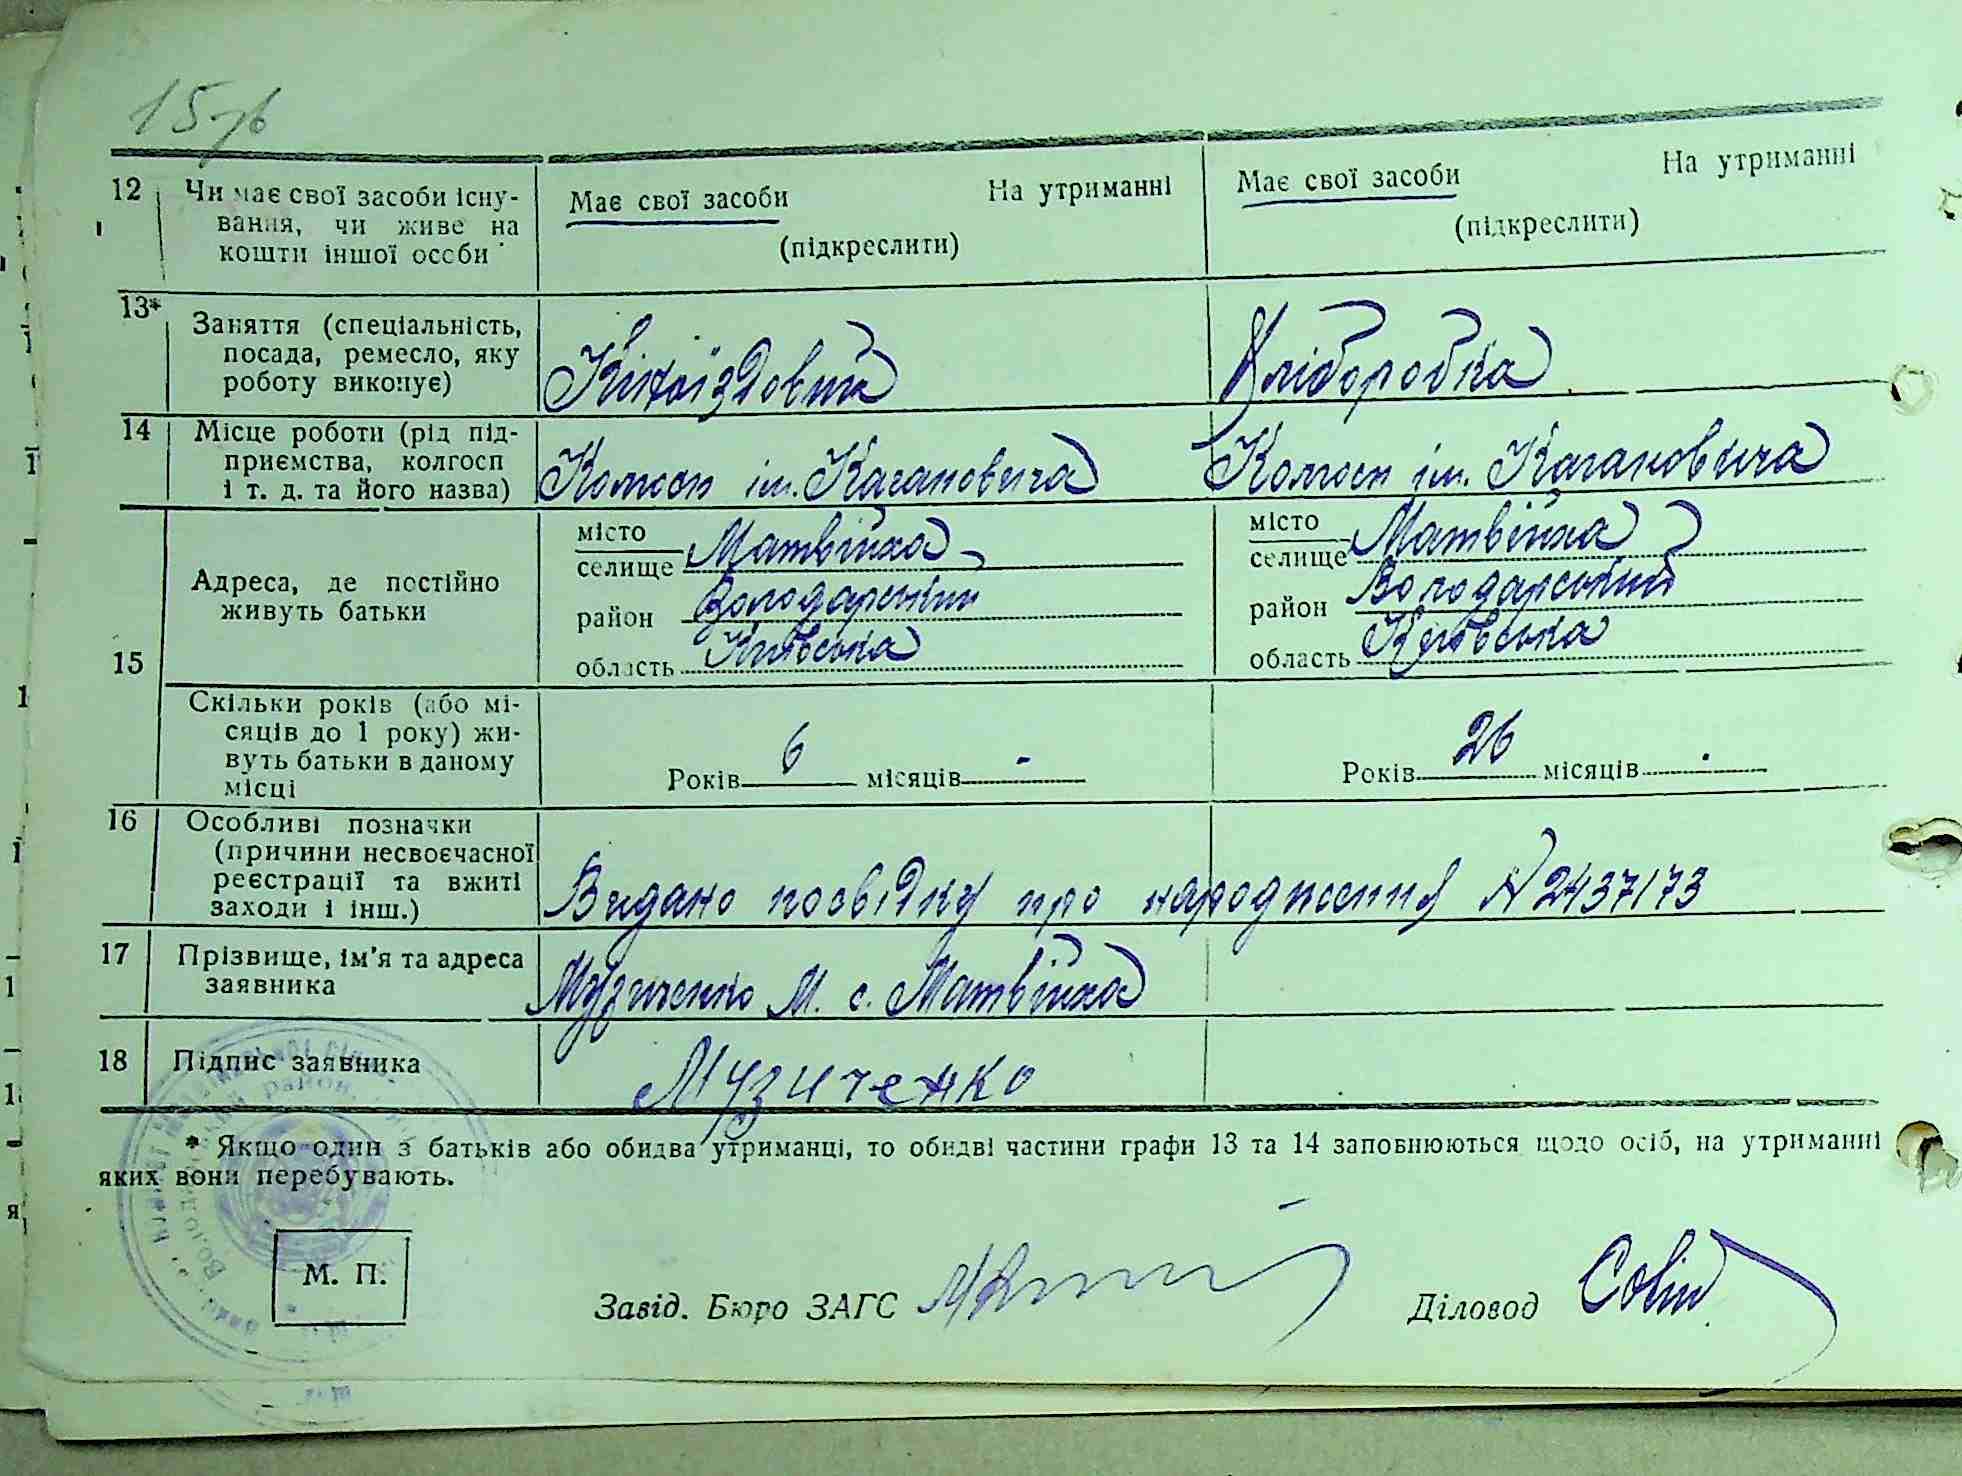 15зв
12 Чи має свої засоби існу- Має свої засоби На утриманні Має свої засоби На утриманні
вання, чи живе на (підкреслити) (підкреслити)
кошти іншої особи
13* Заняття (спеціальність,
посада, ремесло, яку Хліборобка
роботу виконує)
14 Місце роботи (рід під-
приємства, колгосп Колгосп ім. Кагановича Колгосп ім. Кагановича
і т. д. та його назва)
15 Адреса, де постійно живуть батьки
місто селище Матвіїха місто селище Матвіїха
район Володарський район Володарський
область Київська область Київська
Скільки років (або мі-
сяців до 1 року) жи-
вуть батьки в даному Років 6 місяців - Років 26 місяців -
місці
16 Особливі позначки
(причини несвоєчасної
реєстрації та вжиті Видано посвідку про народження N 2437173
заходи і інш.)
17 Прізвище, ім'я та адреса Музиченко М. с. Матвіїха
заявника
18 Підпис заявника Музиченко
* Якщо один з батьків або обидва утриманці, то обидві частини графи 13 та 14 заповнюються щодо осіб, на утриманні
яких вони перебувають.
М. П.
Завід. Бюро ЗАГС Діловод